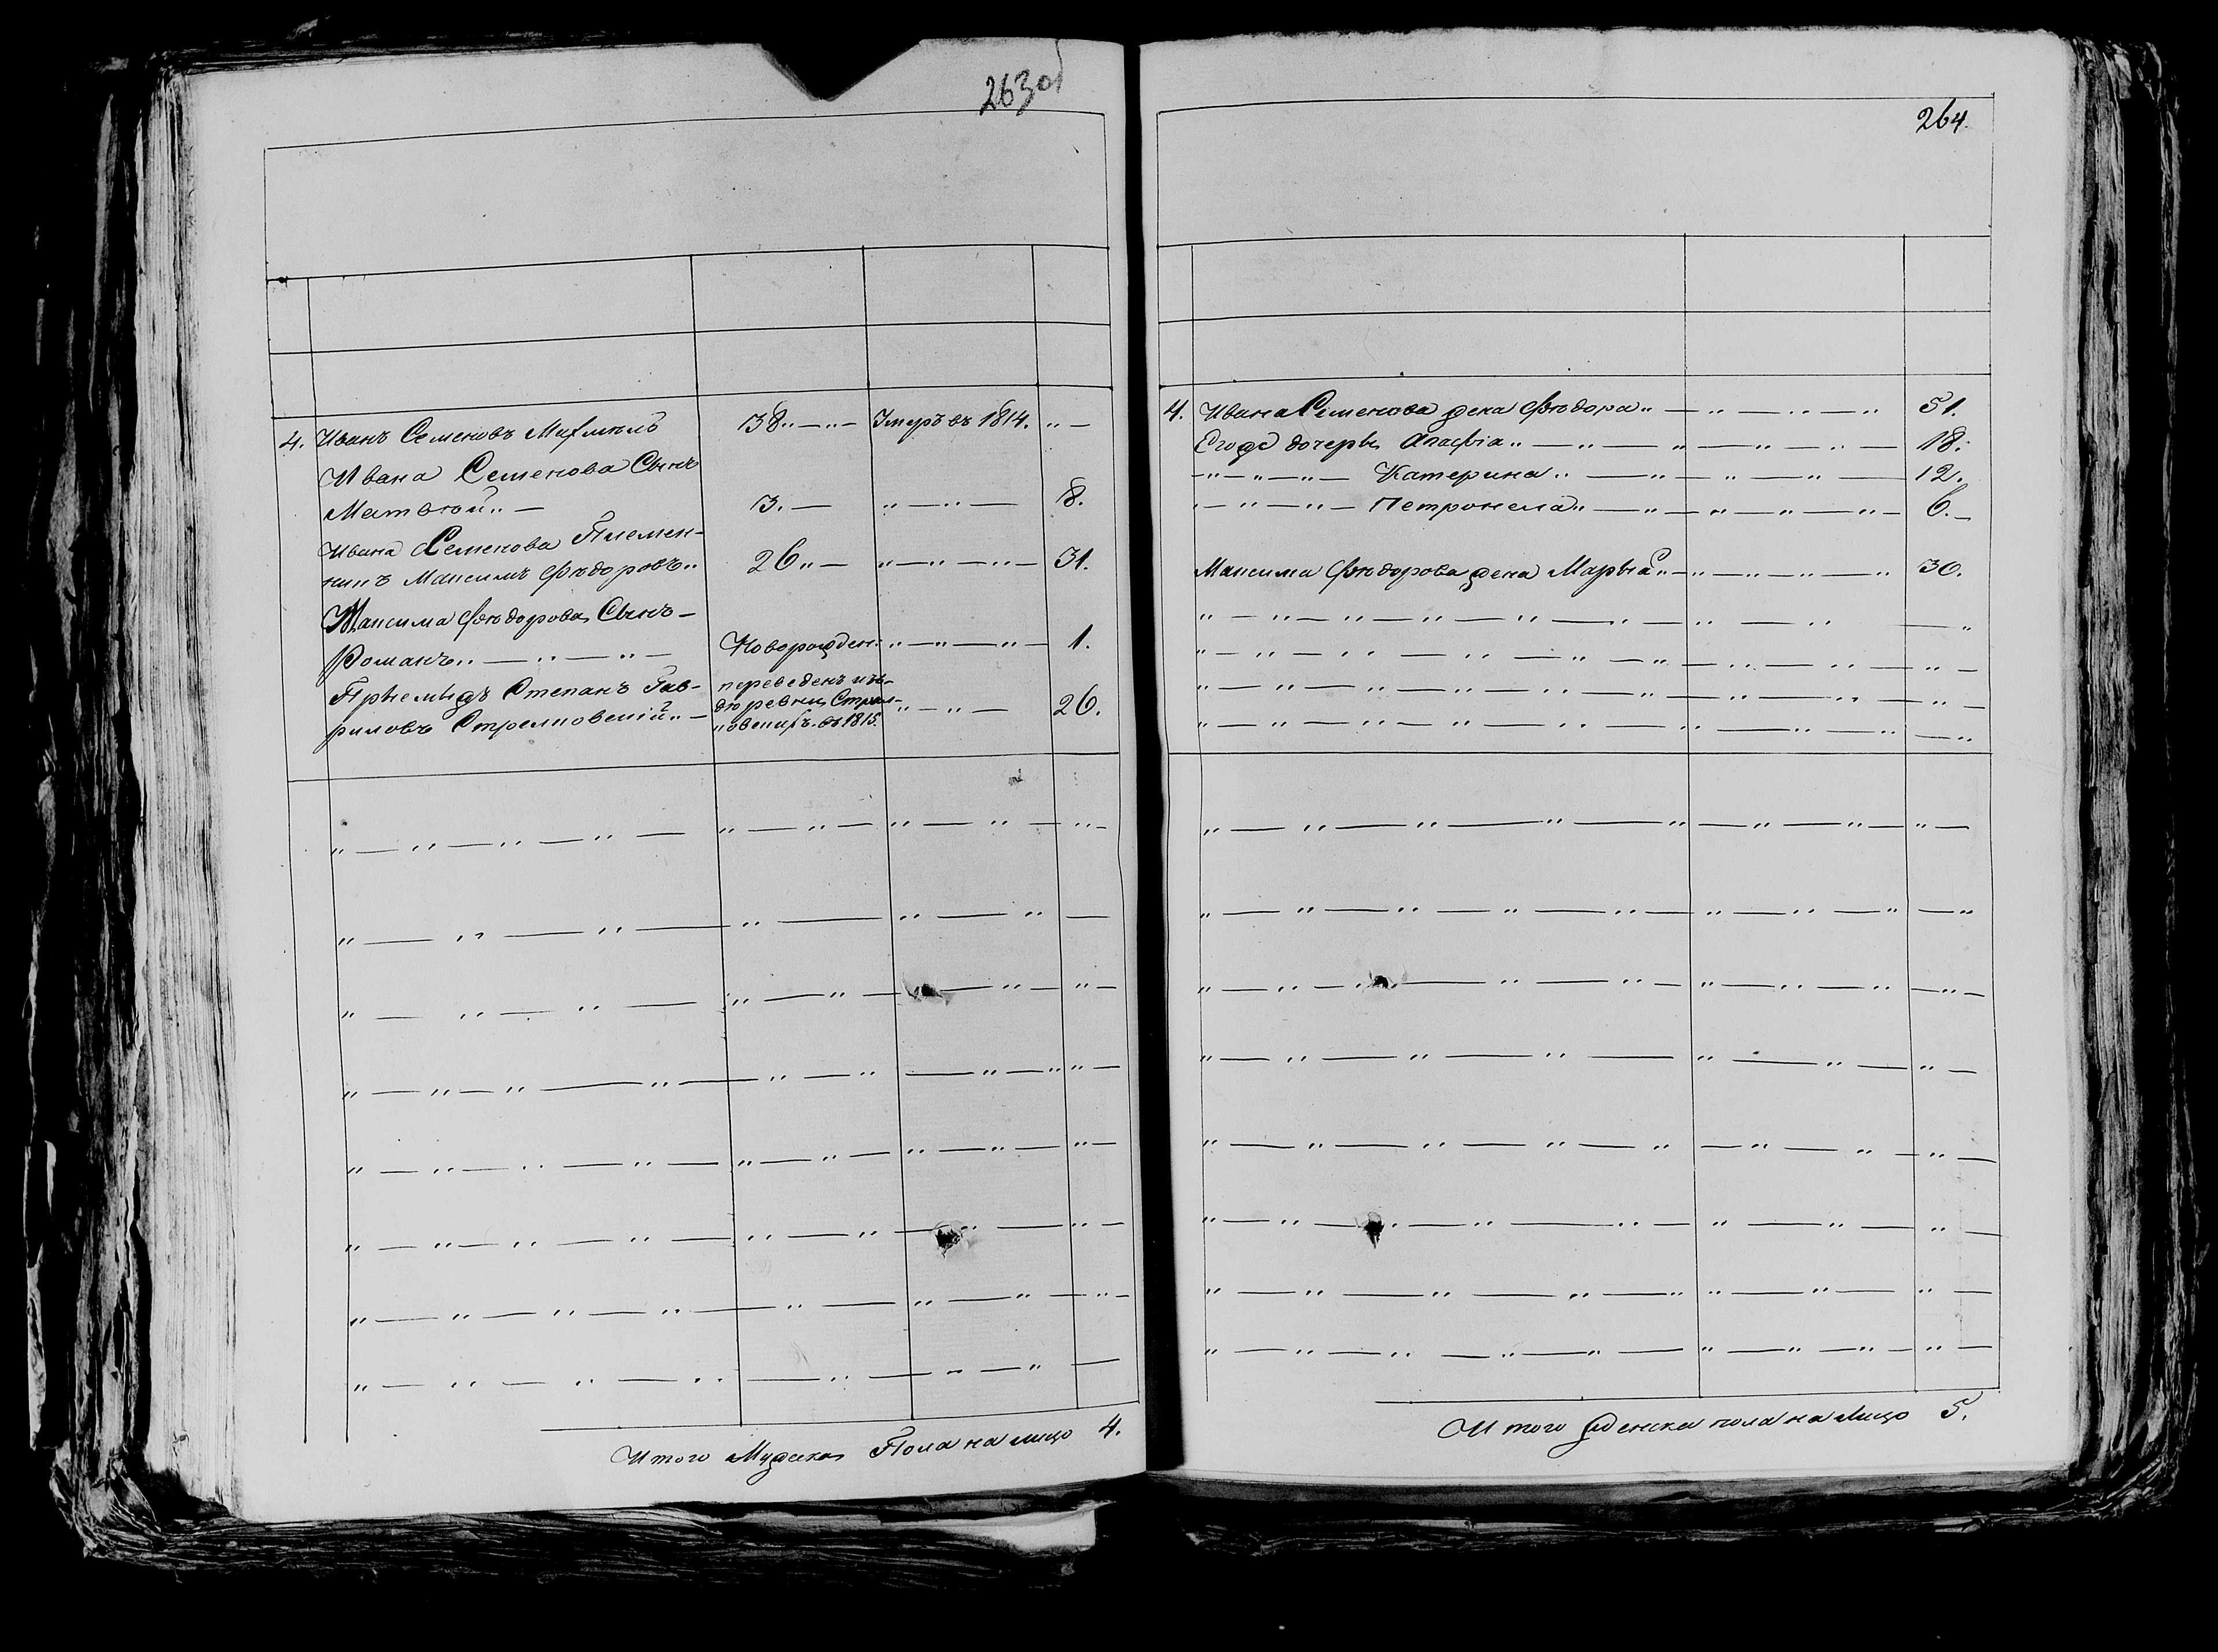 263об
4. Иванъ Семеновъ 38 „ — „ — Умеръ въ 1814. „ —
Ивана Семенова Сынъ
Матвѣй „ — 3. — „ — „ — 8.
Ивана Семенова Племен-
никъ Максимъ Фѣдоровъ „ 26 „ — „ — „ — „ — 31.
Максима Фѣдорова Сынъ —
Романъ „ — „ — „ — Новорожден: „ — „ — „ — 1.
Пріемышъ Степанъ Гав- переведенъ изъ
риловъ деревни „ — „ — 26.
въ 1815.
Итого Мужска Пола на лицо 4.
264.
4. Ивана Семенова жена Фѣдора „ — „ — „ — „ 51.
Егоже дочери Агафія „ — „ — „ — „ — „ — 18.
„ — „ — „ — Катерина „ — „ — „ — „ — 12.
„ — „ — „ — Петронела „ — „ — „ — „ — „ — 6. —
Максима Фѣдорова жена Марья „ — „ — „ — „ — „ 30.
Итого женска пола на лицо 5.